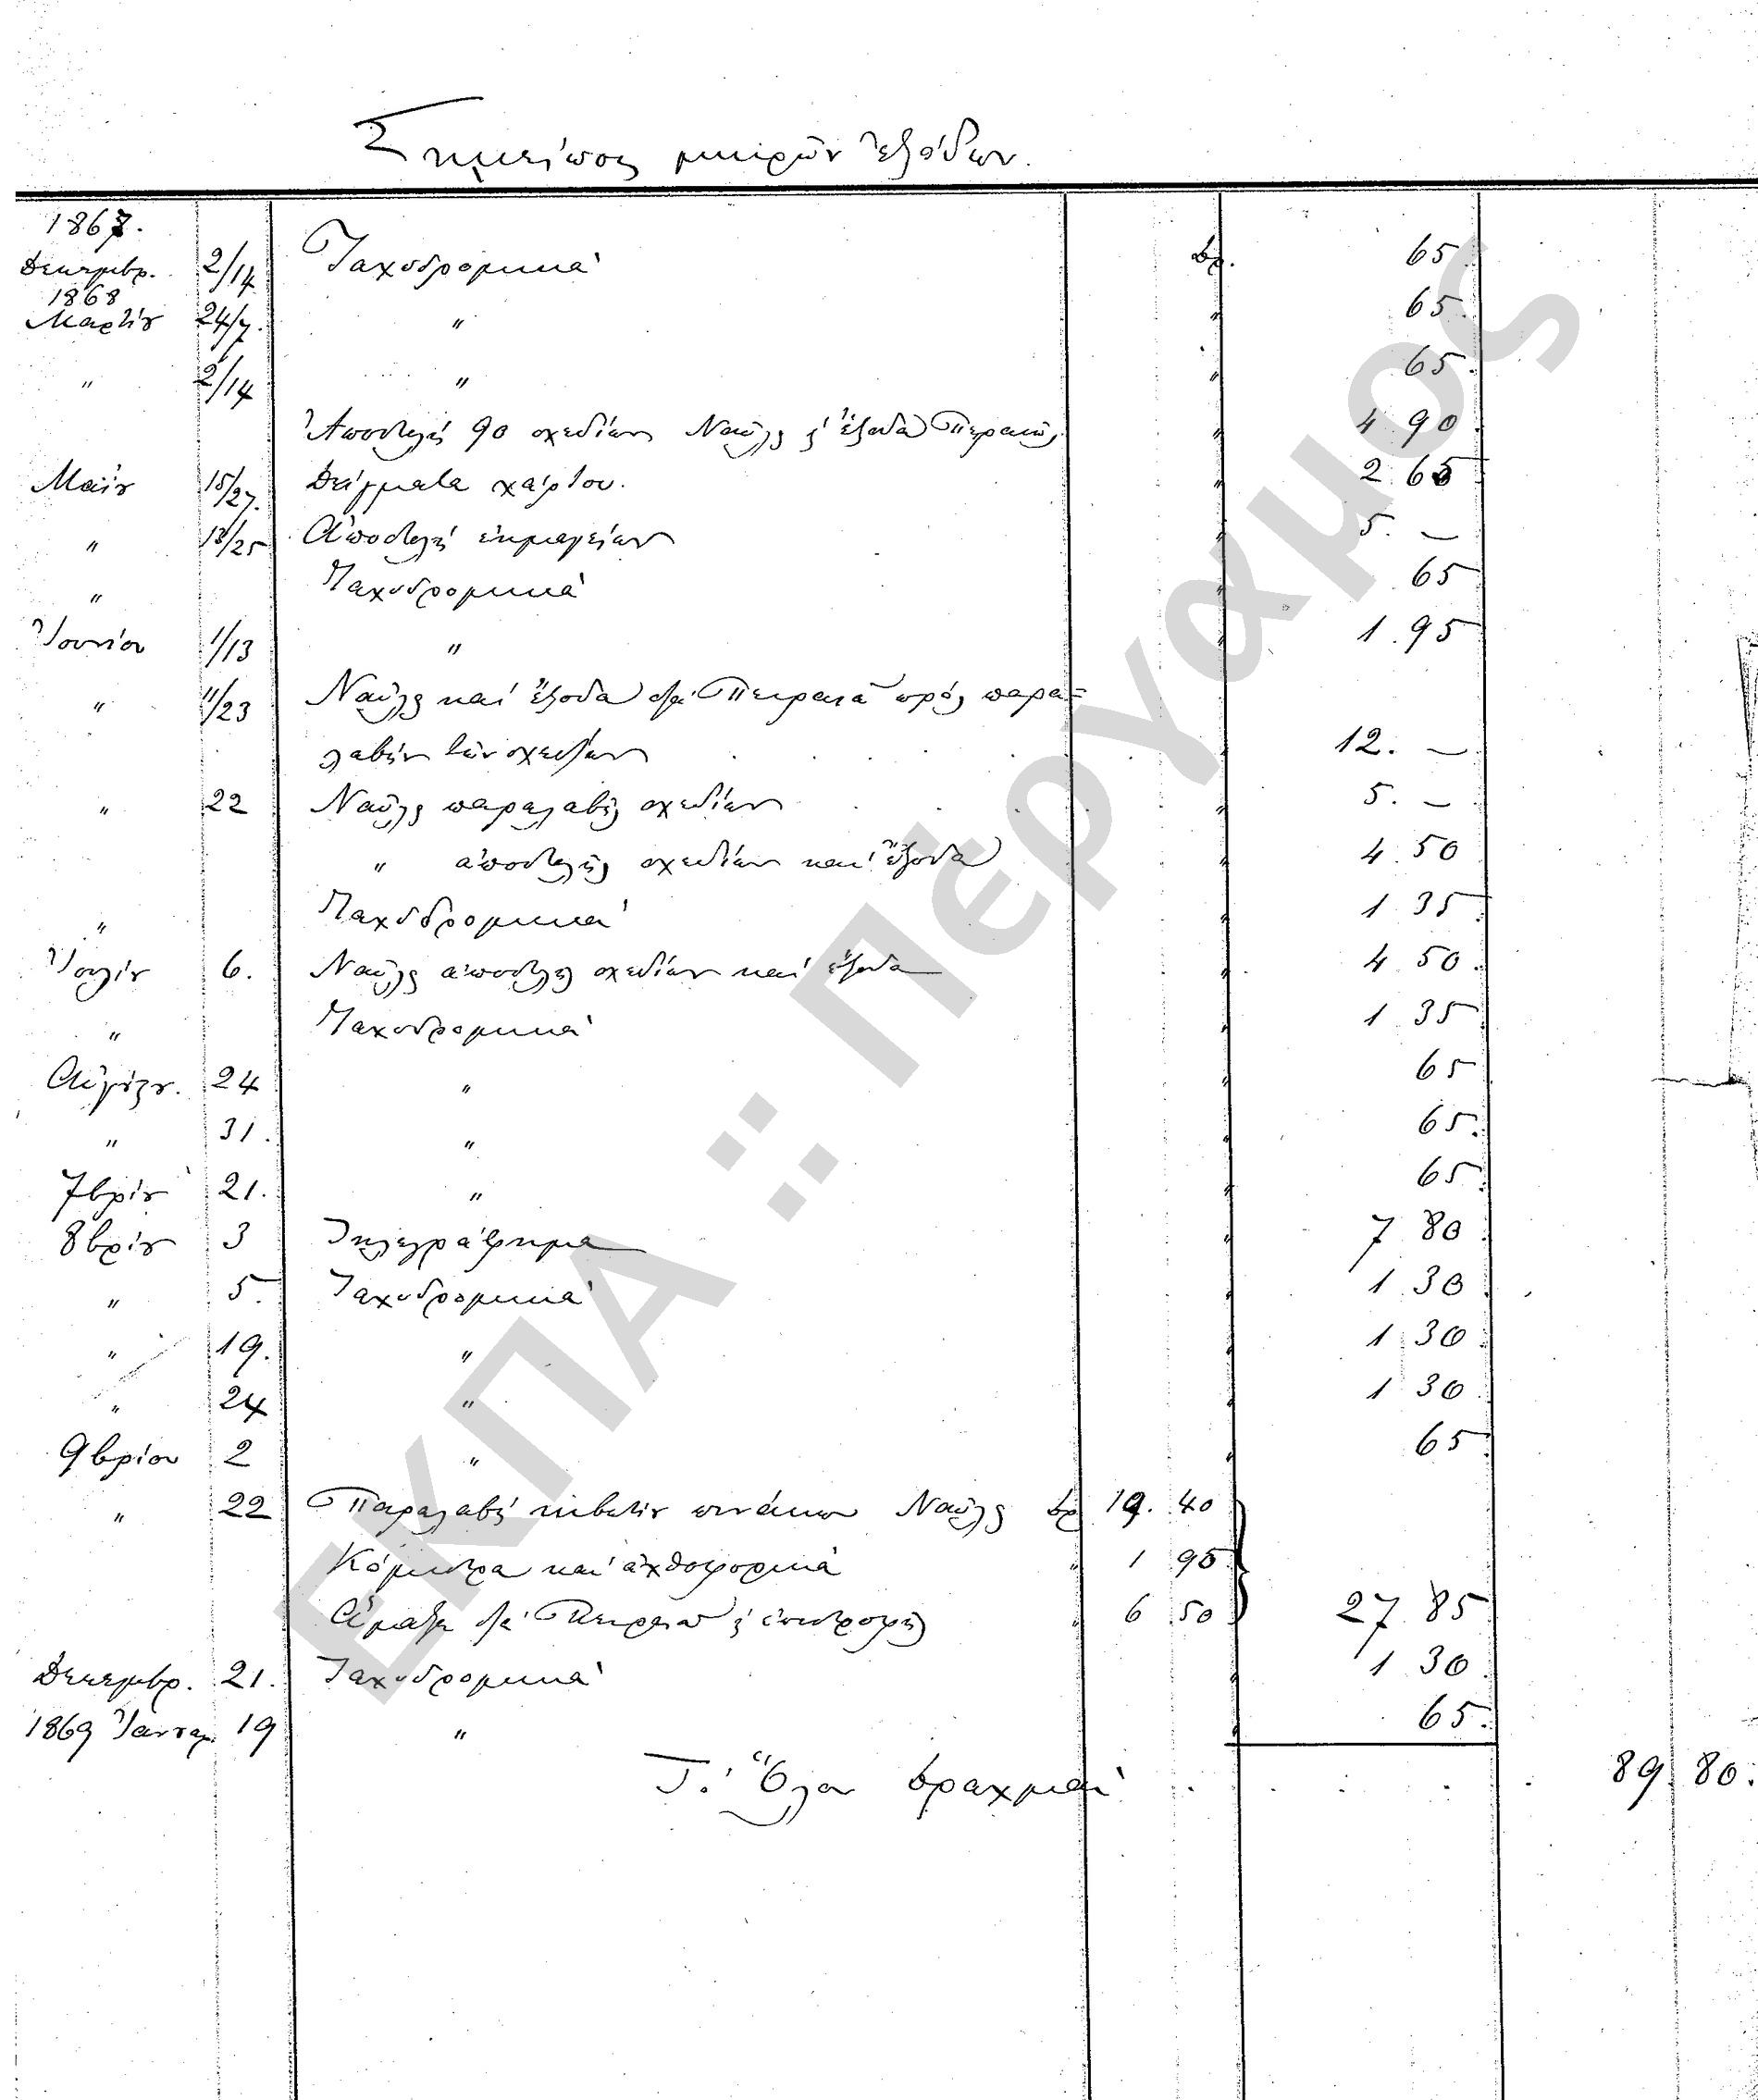 Σημείωσις μικρῶν ἐξόδων.
1867.
Δεκεμβρ. 2/14 Ταχυδρομικά δρ. 65
1868
Μαρτίου 24/7. " " 65.
" 2/14 " " 65.
Ἀποστολή 90 σχεδίων Ναῦλος ἔξοδα Πειραιῶς " 4.90
Μαΐου 15/27. Δείγματα χάρτου. " 2.65
" 13/25 Ἀποστολή ἐκμαγείων " 5. —
" Ταχυδρομικά " 65
Ἰουνίου 1/13 " " 1.95
" 11/23 Ναῦλος καί ἔξοδα διά Πειραιᾶ πρός παρα=
λαβήν τῶν σχεδίων " 12. —
" 22 Ναῦλος παραλαβῆς σχεδίων " 5. —
" ἀποστολῆς σχεδίων καί ἔξοδα " 4.50
" Ταχυδρομικά " 1 35
Ἰουλίου 6. Ναῦλος ἀποστολῆς σχεδίων καί ἔξοδα " 4 50.
" Ταχυδρομικά " 1 35
Αὐγούστου. 24 " " 65
" 31. " " 65.
7βρίου 21. " " 65
8βρίου 3 Τηλεγράφημα " 7 80
" 5. Ταχυδρομικά " 1 30
" 19. " " 1 30
" 24 " " 1 30
9βρίου 2 " " 65
" 22 Παραλαβή κιβωτίου πινάκων Ναῦλος δρ 19.40
Κόμιστρα καί ἀχθοφορικά " 1 95
Ἅμαξα διά Πειραιᾶ ἐπιστροφῆς " 6 50 27 85
Δεκεμβρ. 21. Ταχυδρομικά " 1 30
1869 Ἰανουαρ. 19 " " 65.
Τ. Ὅλον δραχμαί 89.80.
ΕΚΠΑ :: Πέργαμος